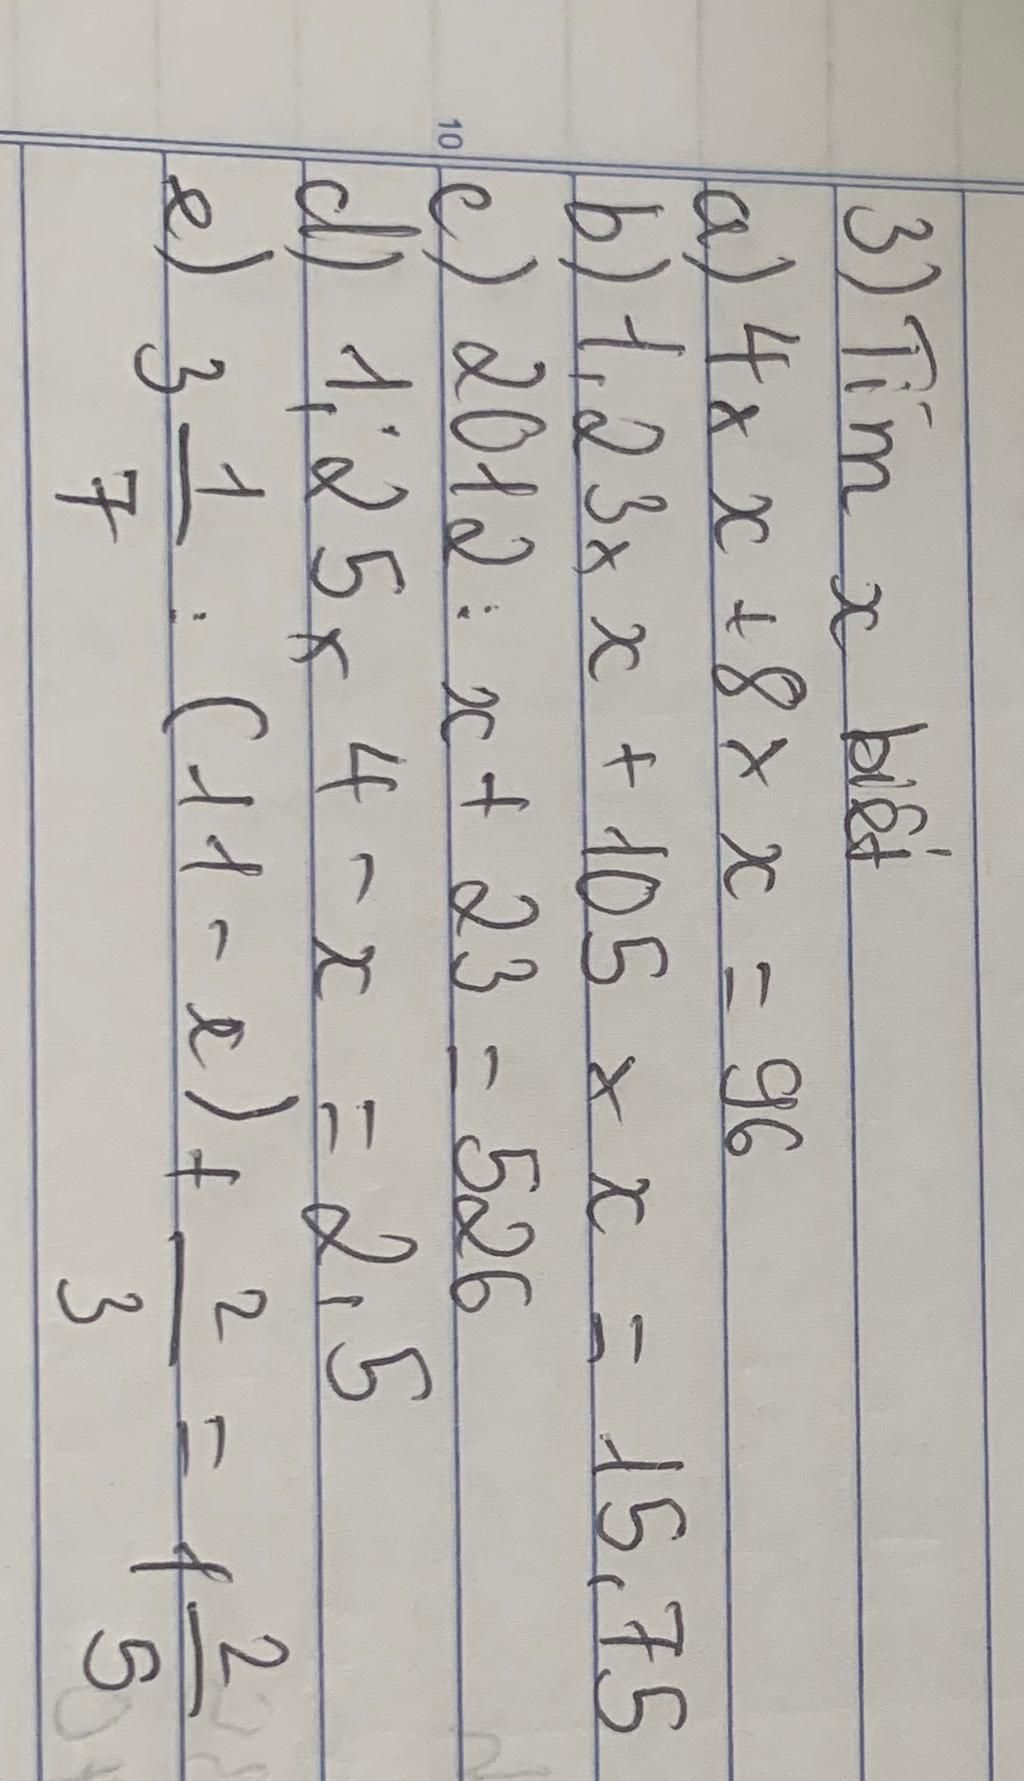 3) Tìm x biết
a) 4 x x + 8 x x = 96
b) 1,23 x x + 105 x x = 15,75
c) 2012 : x + 23 = 526
d) 1,25 x 4 - x = 2,5
e) 3 1/7 : (11 - x) + 2/3 = 1 2/5
10